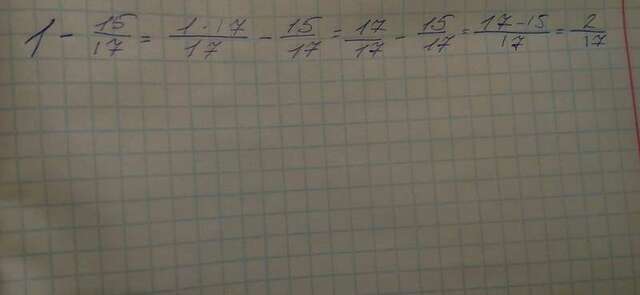 1 - 15/17 = 1·17/17 - 15/17 = 17/17 - 15/17 = 17-15/17 = 2/17